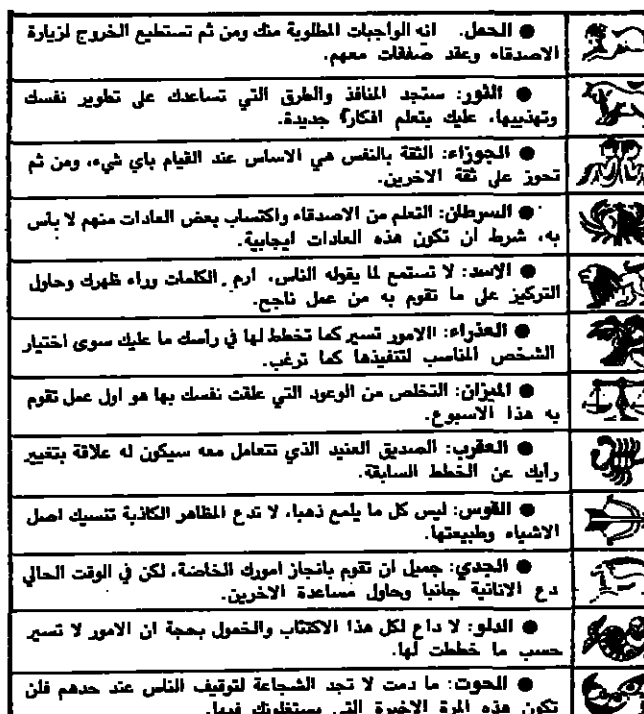 ● الحمل. انه الواجبات المطلوبة منك ومن ثم تستطيع الخروج لزيارة
الاصدقاء وعقد صفقات معهم.
● الثور: ستجد المنافذ والطرق التي تساعدك على تطوير نفسك
وتهذيبها، عليك بتعلم افكاراً جديدة.
● الجوزاء: الثقة بالنفس هي الاساس عند القيام باي شيء، ومن ثم
تحوز على ثقة الاخرين.
● السرطان: التعلم من الاصدقاء واكتساب بعض العادات منهم لا بأس
به، شرط ان تكون هذه العادات ايجابية.
● الاسد: لا تستمع لما يقوله الناس. ارم الكلمات وراء ظهرك وحاول
التركيز على ما تقوم به من عمل ناجح.
● العذراء: الامور تسير كما تخطط لها في رأسك ما عليك سوى اختيار
الشخص المناسب لتنفيذها كما ترغب.
● الميزان: التخلص من الوعود التي علقت نفسك بها هو اول عمل تقوم
به هذا الاسبوع.
● العقرب: الصديق العنيد الذي تتعامل معه سيكون له علاقة بتغيير
رأيك عن الخطط السابقة.
● القوس: ليس كل ما يلمع ذهبا، لا تدع المظاهر الكاذبة تنسيك اصل
الاشياء وطبيعتها.
● الجدي: جميل ان تقوم بانجاز امورك الخاصة، لكن في الوقت الحالي
دع الانانية جانبا وحاول مساعدة الاخرين.
● الدلو: لا داع لكل هذا الاكتئاب والخمول بحجة ان الامور لا تسير
حسب ما خططت لها.
● الحوت: ما دمت لا تجد الشجاعة لتوقيف الناس عند حدهم فلن
تكون هذه المرة الاخيرة التي يستغلونك فيها.